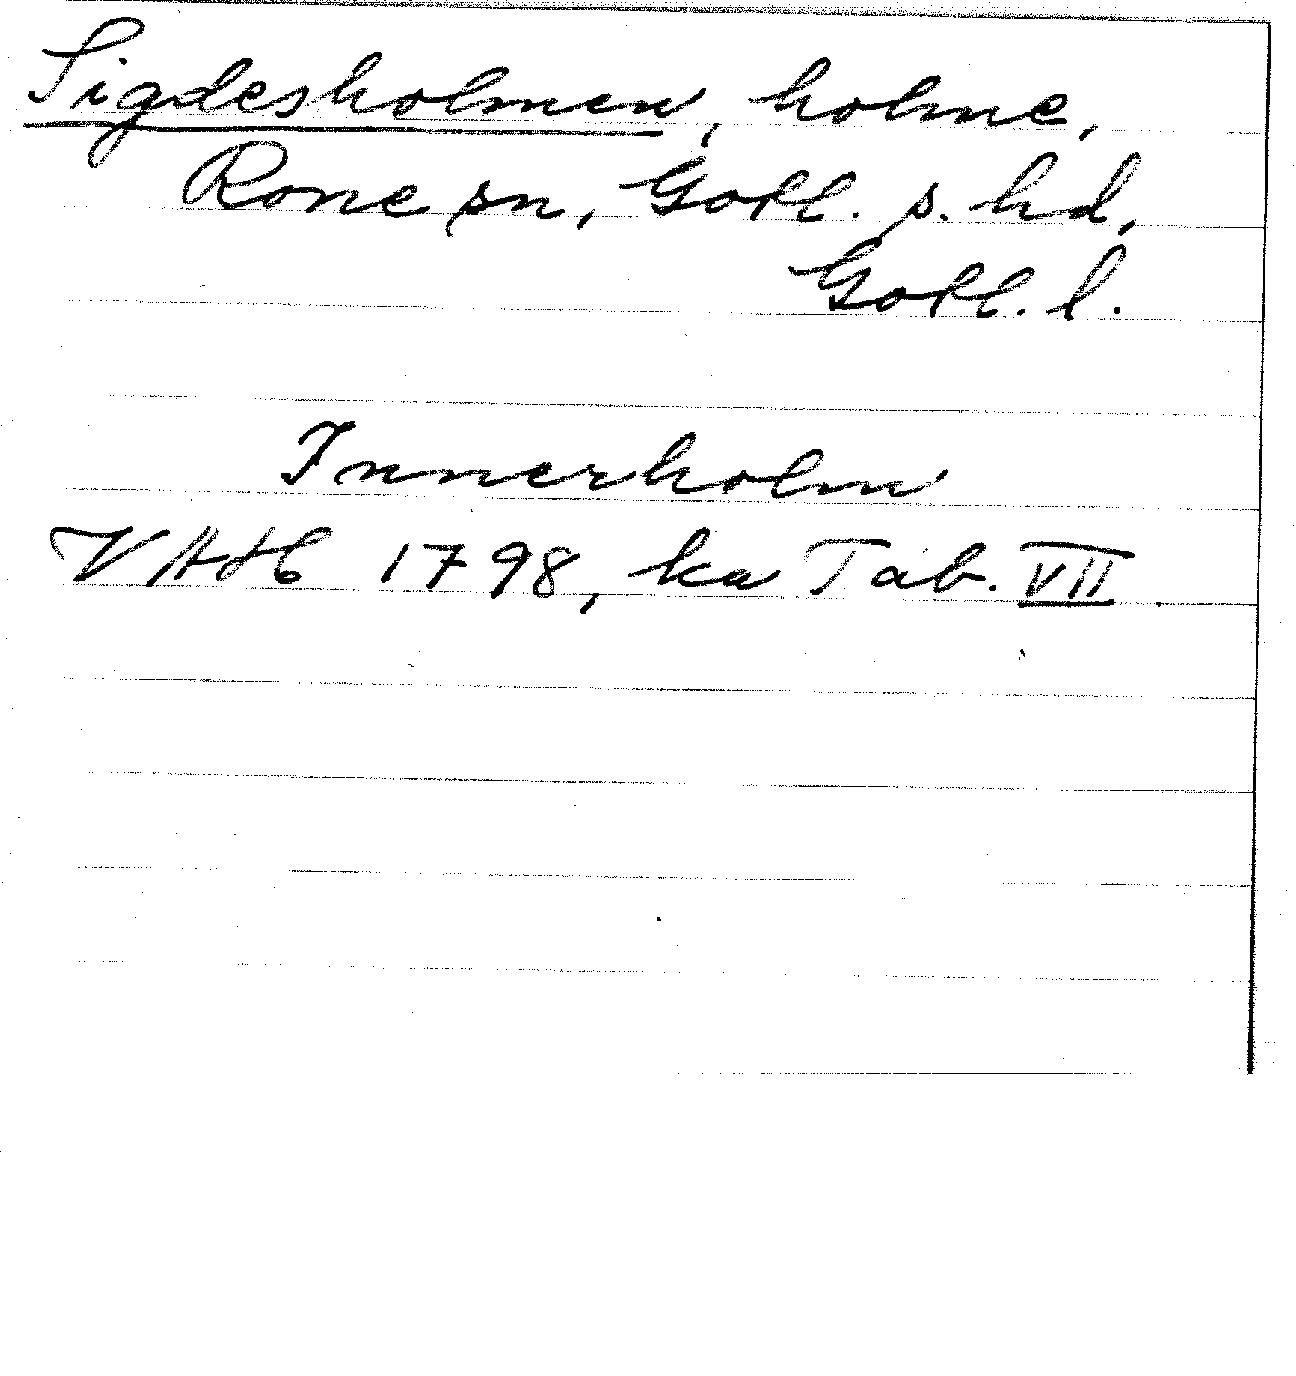 Sigdesholmen, holme,
Rone sn, Gotl. s. hd,
Gotl. l.
Innerholm
1798, ka Tab. VII